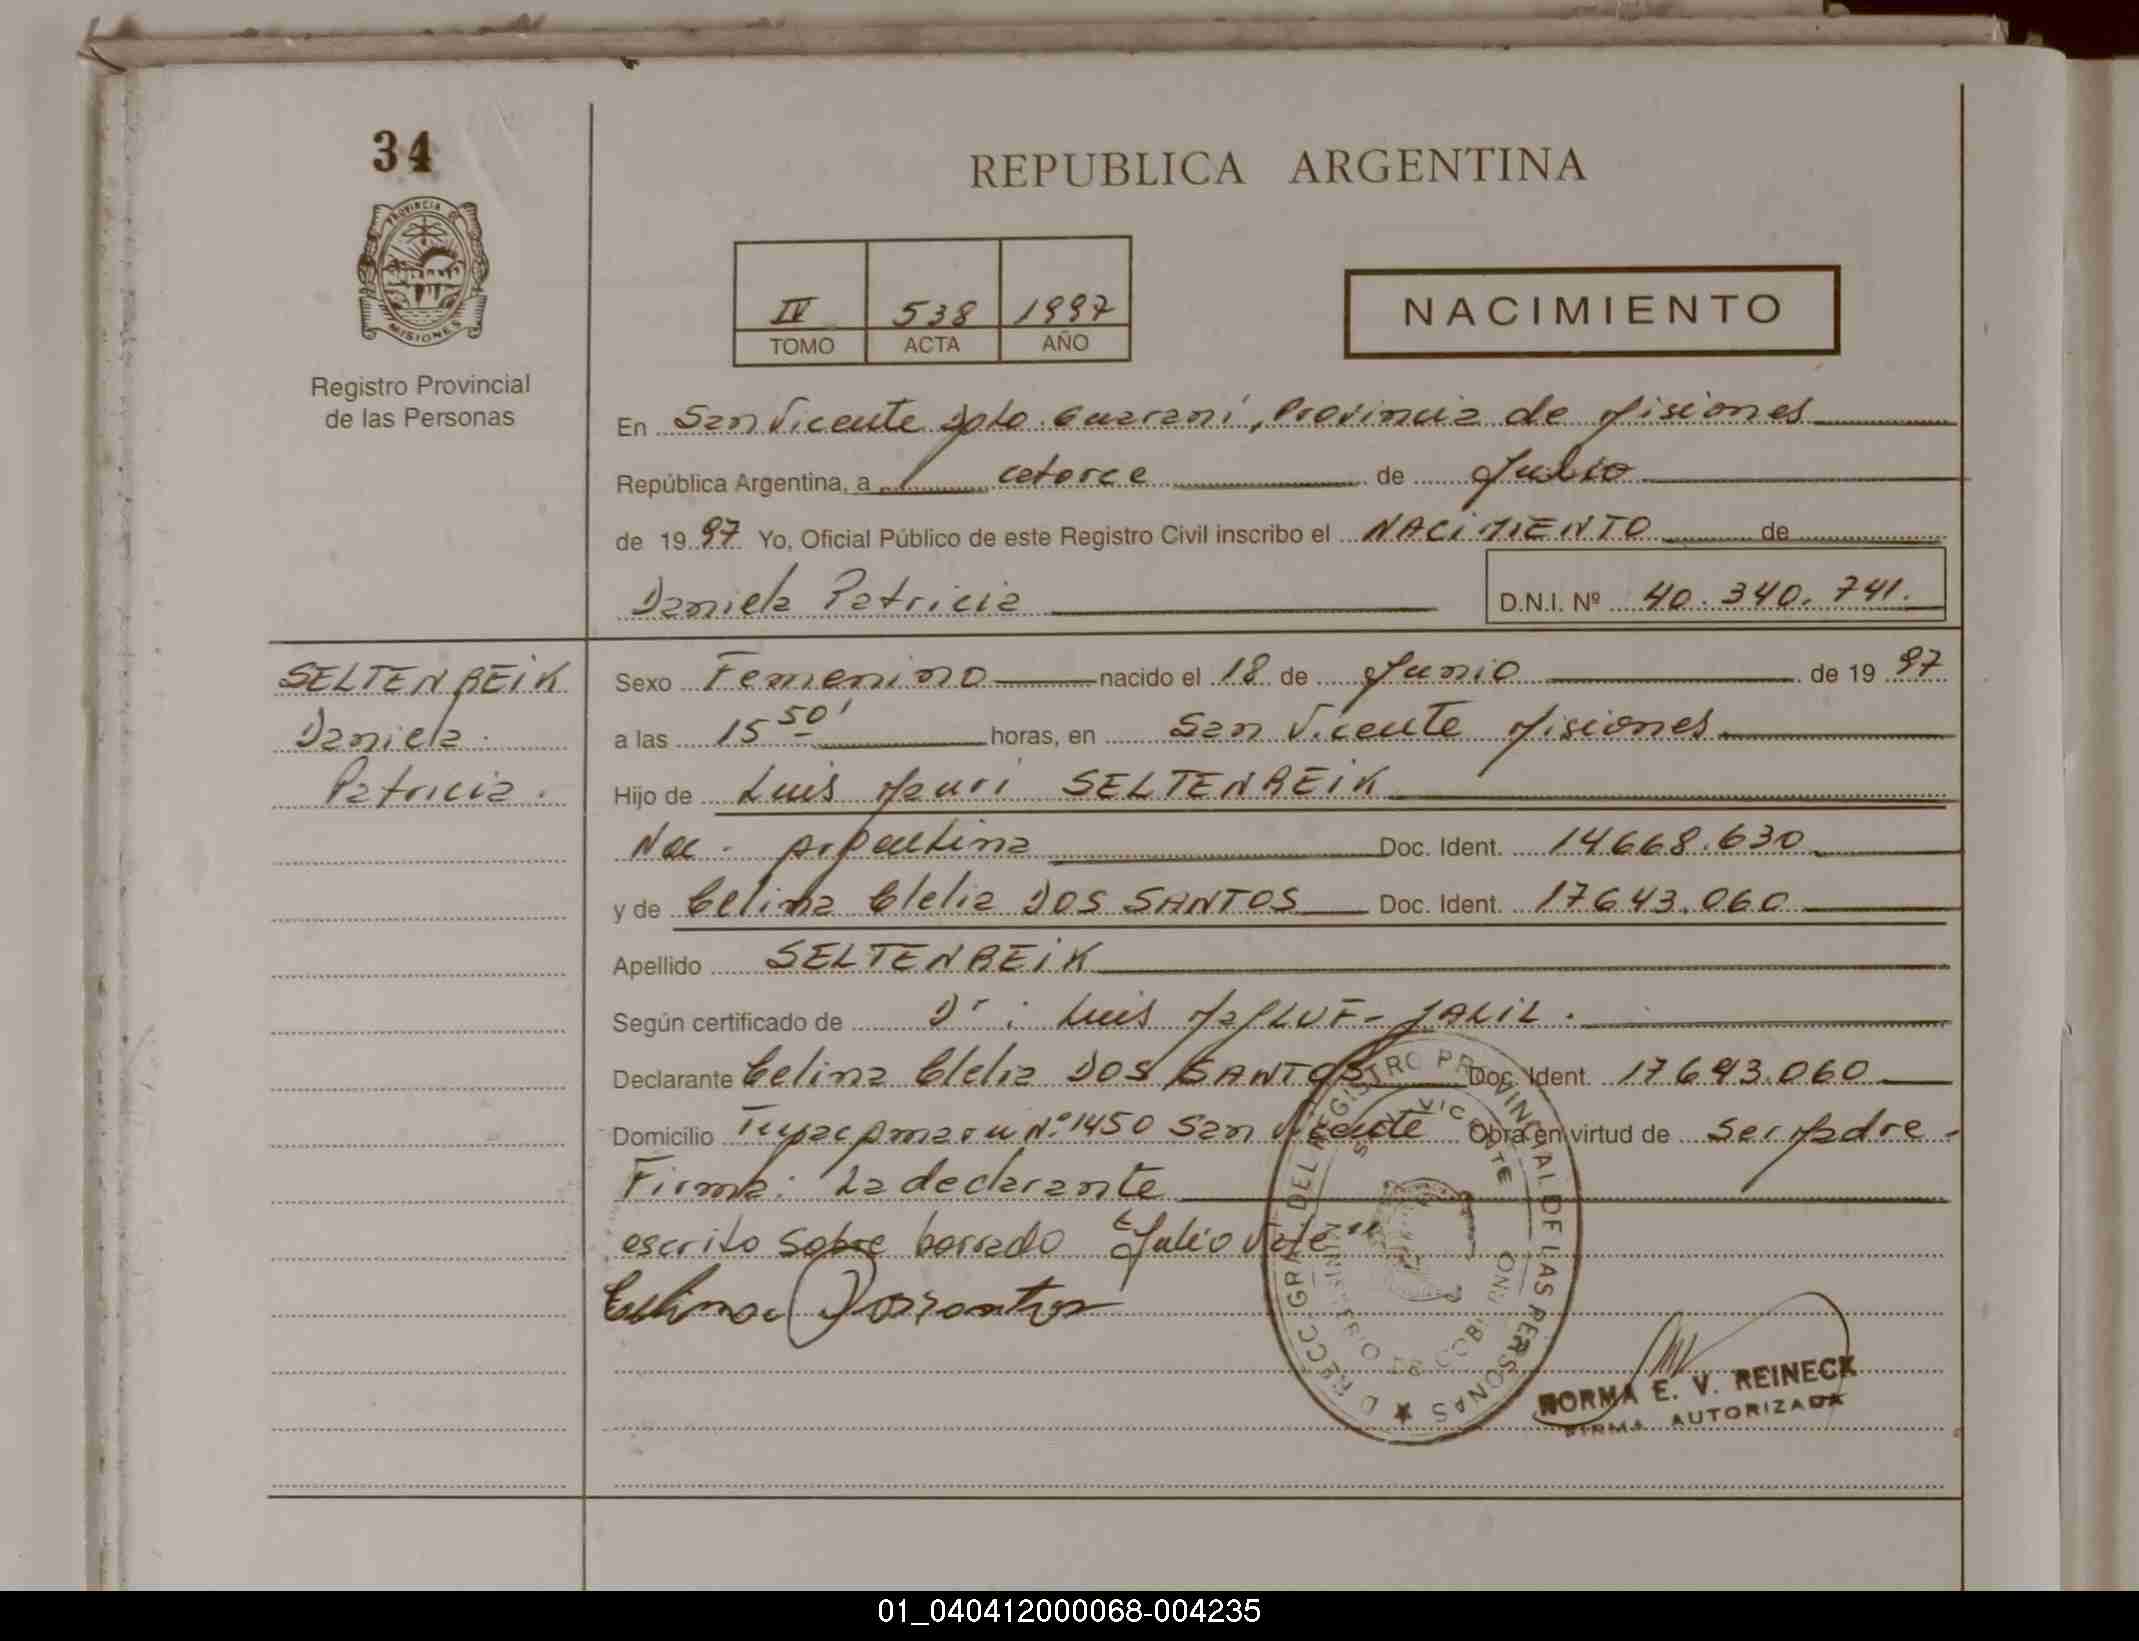 34
PROVINCIA DE
MISIONES
Registro Provincial
de las Personas
REPUBLICA ARGENTINA
IV 538 1997
TOMO ACTA AÑO
NACIMIENTO
En San Vicente Dpto. Guaraní, Provincia de Misiones
República Argentina, a catorce de Julio
de 1997 Yo, Oficial Público de este Registro Civil inscribo el NACIMIENTO de
Daniela Patricia D.N.I. Nº 40.340.741.
SELTENREIK
Daniela
Patricia.
Sexo Femenino nacido el 18 de Junio de 1997
a las 15 50' horas, en San Vicente Misiones
Hijo de Luis Mauri SELTENREIK
Nac. Argentina Doc. Ident. 14668.630
y de Celina Clelia DOS SANTOS Doc. Ident. 17643.060
Apellido SELTENREIK
Según certificado de Dr: Luis MaLUF-JALIL.
Declarante Celina Clelia DOS SANTOS Doc. Ident. 17643.060
Domicilio Tupac Amaru Nº 1450 San Vicente Obra en virtud de ser Madre.
Firma: La declarante
escrito sobre borrado "Julio Vale"
Celina Dossantos
DIRECC. GRAL. DEL REGISTRO PROVINCIAL DE LAS PERSONAS
SAN VICENTE
MINISTERIO DE GOBIERNO
NORMA E. V. REINECK
FIRMA AUTORIZADA
01_040412000068-004235